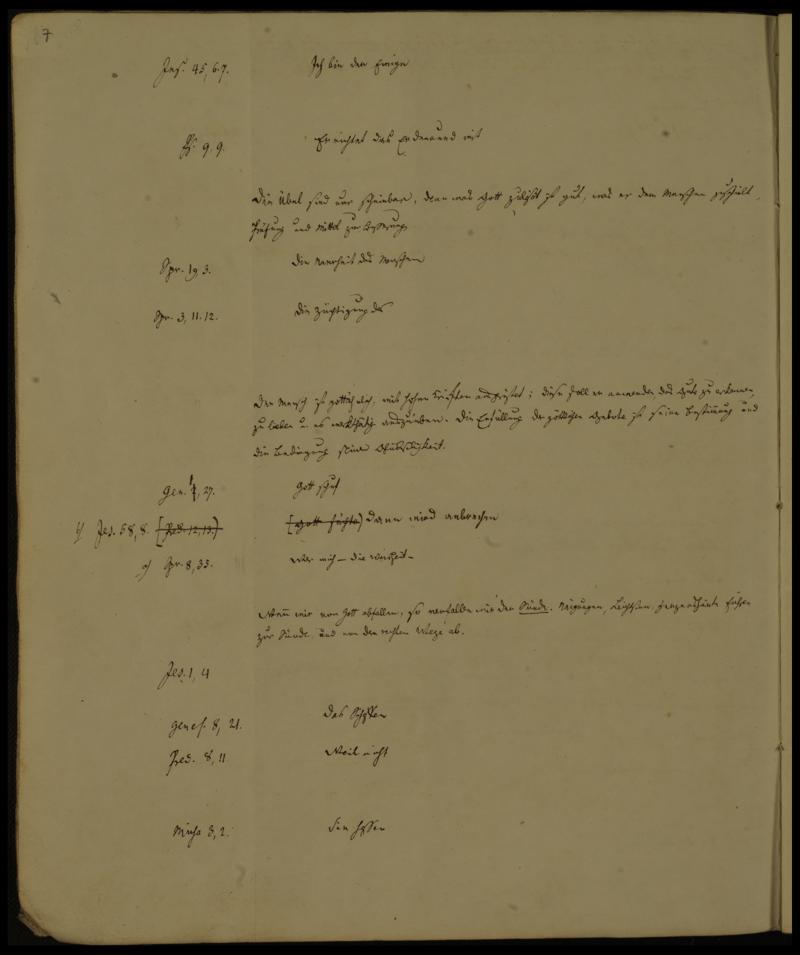 7
Jes. 45, 6.7. Ich bin der Ewige
Ps. 9, 9. Er richtet das Erdenrund mit
Die Übel sind nur scheinbar, denn was Gott zuläßt ist gut, was er dem Menschen
Prüfung und Mittel zur Besserung
Spr. 19 3. Die Narrheit des Menschen
Spr. 3, 11.12. Die Züchtigung des
Der Mensch ist göttlich, mit hohen Kräften ausgerüstet; diese soll er anwenden das Gute zu erkennen,
zu lieben u. es werkthätig auszuüben. Die Erfüllung der göttlichen Gebote ist seine Bestimmung und
die Bedingung seiner Glückseligkeit.
Gen. 1, 27. Gott schuf
b) Jes. 58, 8. [Pred. 12, 13.] [Gott fürchte] Dann wird anbrechen
a) Spr. 8, 35. Wer mich — die Weisheit —
Wenn wir von Gott abfallen, so verfallen wir der Sünde. Neigungen, führen
zur Sünde, und von dem rechten Wege ab.
Jes. 1, 4
Genes. 8, 21. Das
Pred. 8, 11 Weil nicht
Micha 3, 2. Sie hassen